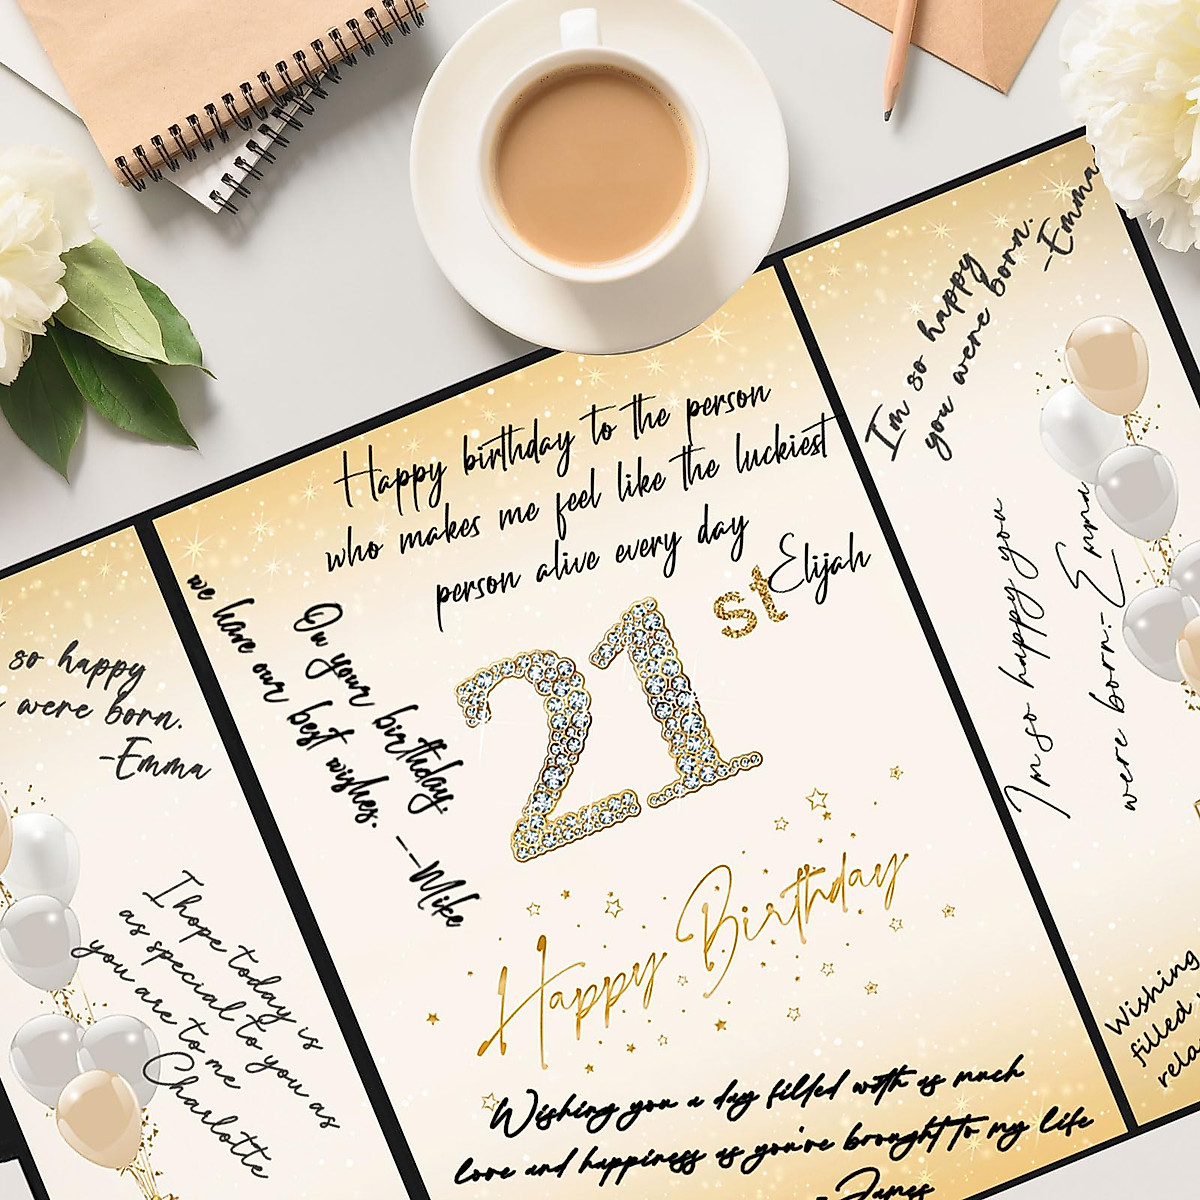 Happy birthday to the person
who makes me feel like the luckiest
person alive every day
Elijah
On your birthday,
we have our best wishes.
--Mike
21st
Happy Birthday
Wishing you a day filled with as much
love and happiness as you've brought to my life
-James
so happy
were born.
-Emma
I hope today is
as special to you as
you are to me
Charlotte
I'm so happy
you were born.
-Emma
I'm so happy you
were born.-Emma
Wishing
filled